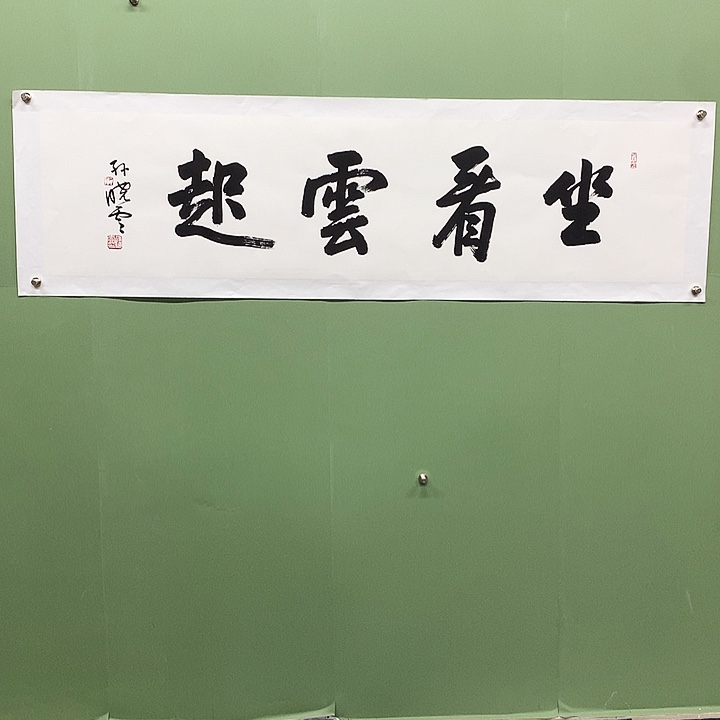 坐看雲起
孙晓云